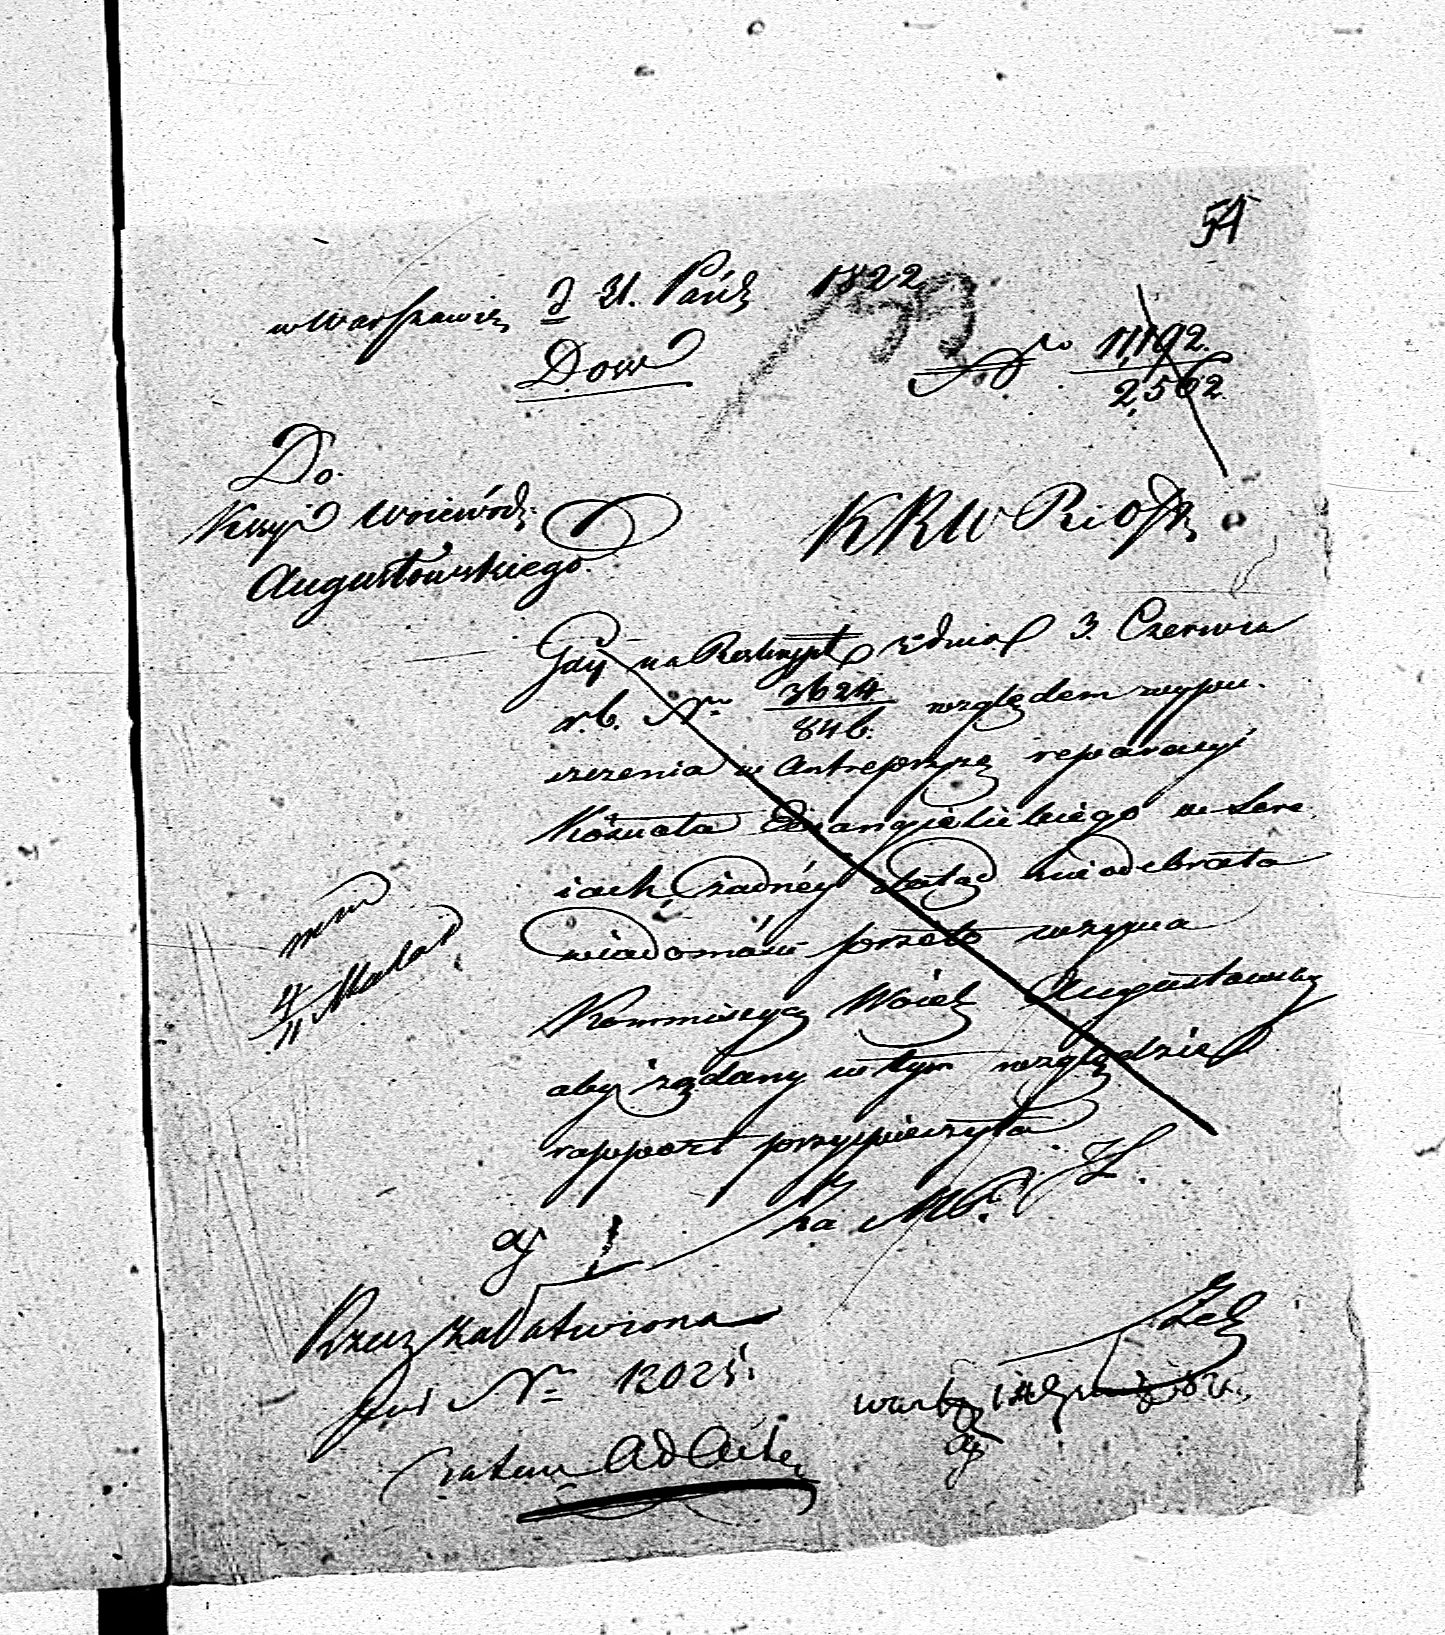 54
w Warszawie d 31. Paźdź 1822
59
Dow
No 11,192.
2,562.
Do
Kssyi Woiewódz.
Augustowskiego
KRW Ri OP
Gdy na Reskrypt z dnia 3. Czerwca
r. b. No 3624
846. względem wypu-
szczenia w Antrepryzę reparacyi
Kościoła Ewangielickiego w Sere
iach, żadnéy dotąd nieodebrała
wiadomości przeto wzywa
Kommissyą Woiewdz Augustowską
aby żądany w tym względzie
rapport przyspieszyła
za M P.
mm
4/11
Rzecz załatwiona
pod No 12025.
zatem Ad Acta